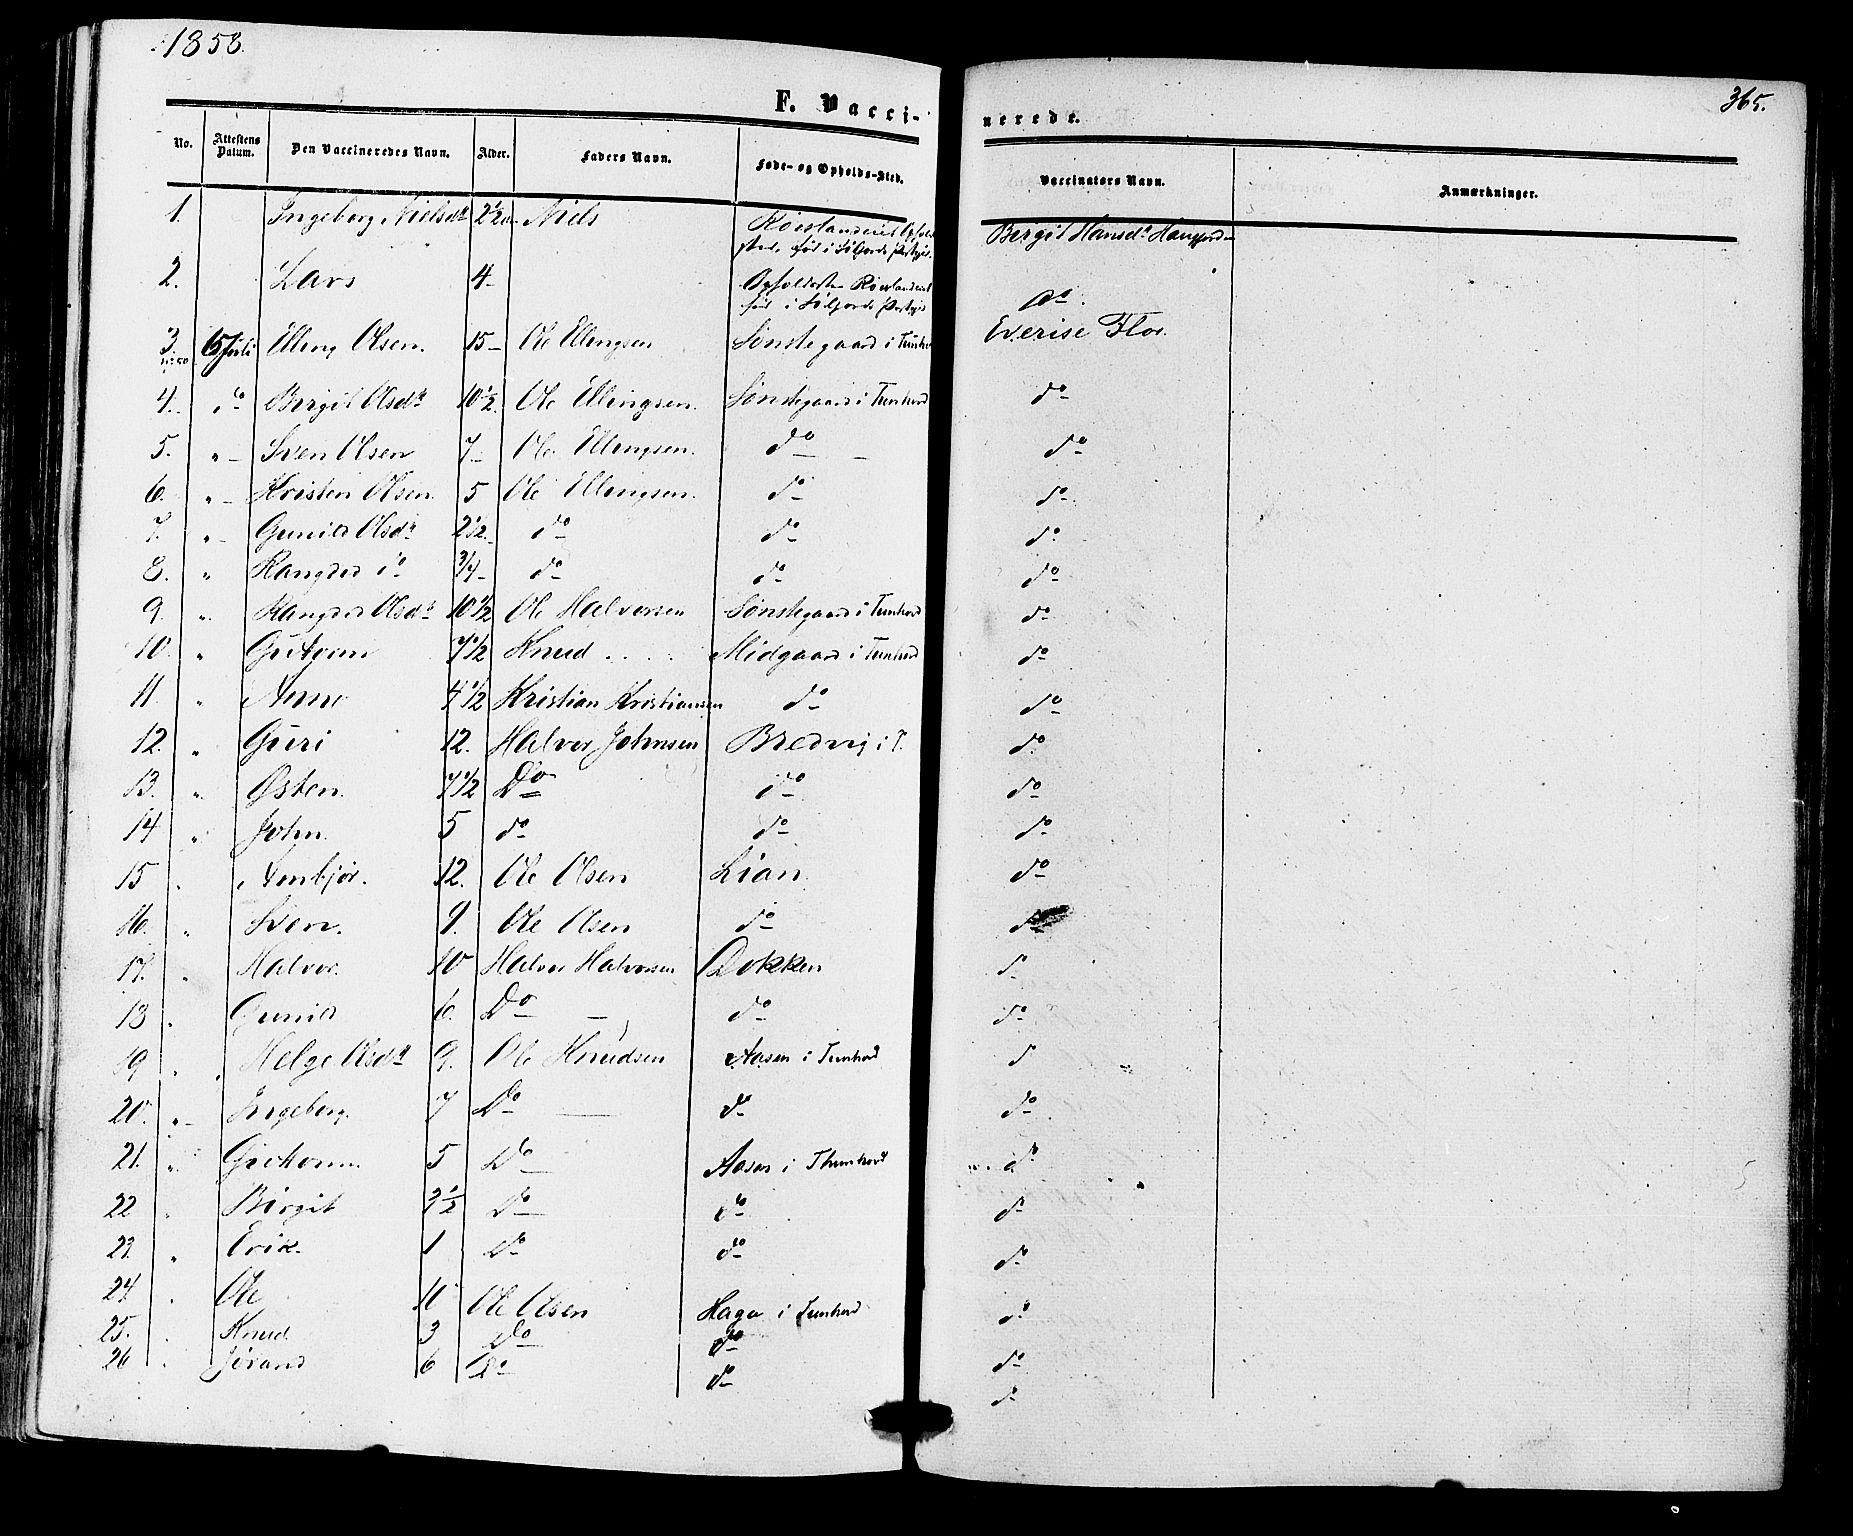 1858.
365.
F. Vaccinerede.
No. Attestens Datum. Den Vaccineredes Navn. Alder. Faders Navn. Føde- og Opholds-Sted. Vaccinators Navn. Anmærkninger.
1. Ingeborg Nielsdr 2 1/2 Niels Birgit Hansdr
født i
2. Lars 4 do
født i
3. 15 Juli Elling Olsen. 15 Ole Ellingsen Sønstegaard i Tunhovd Flor.
4. do Birgit Olsdr 10 1/2. Ole Ellingsen. Sønstegaard i Tunhovd do
5. " Sven Olsen 7 Ole Ellingsen. do do
6. " Kristen Olsen. 5 Ole Ellingsen. do do
7. " Gunild Olsdr 2 1/2. do do do
8. " Rangded do 3/4 do do do
9. " Rangded Olsdr 10 1/2 Ole Halvorsen Sønstegaard i Tunhovd do
10. " 7 1/2 Knud .... Midgaard i Tunhovd do
11. " Anne 4 1/2 Kristian Kristiansen do do
12. " Guri 12. Halvor Johnsen Bredvig i T. do
13. " Østen. 7 1/2 Do do do
14 " John. 5 do do do
15 " Anbjør. 12. Ole Olsen Lian. do
16. " Sven. 9. Ole Olsen do do
17. " Halvor. 10 Halvor Halvorsen Dokken do
18 " Gunild 6. Do do do
19 " Helge Olsdr 9. Ole Knudsen Aasen i Tunhovd do
20. " Ingeborg. 7 Do do do
21. " 5 Do Aasen i Thunhovd do
22 " Birgit 2 1/2 Do do do
23. " Erik. 1 Do do do
24 " Ole 11 Ole Olsen Haga i Tunhovd do
25. " Knud. 3 Do do do
26 " Jørand 6 Do do do